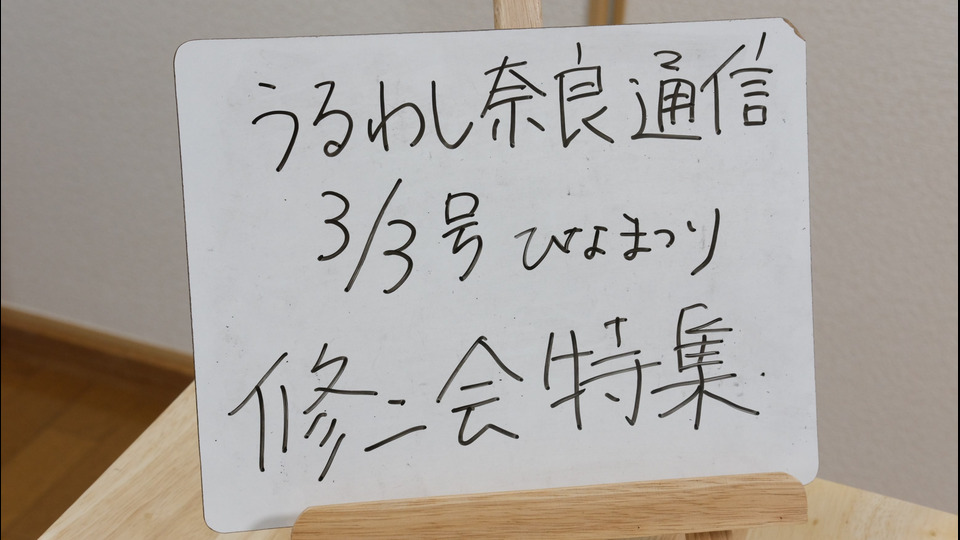 うるわし奈良通信
3/3号 ひなまつり
修二会特集